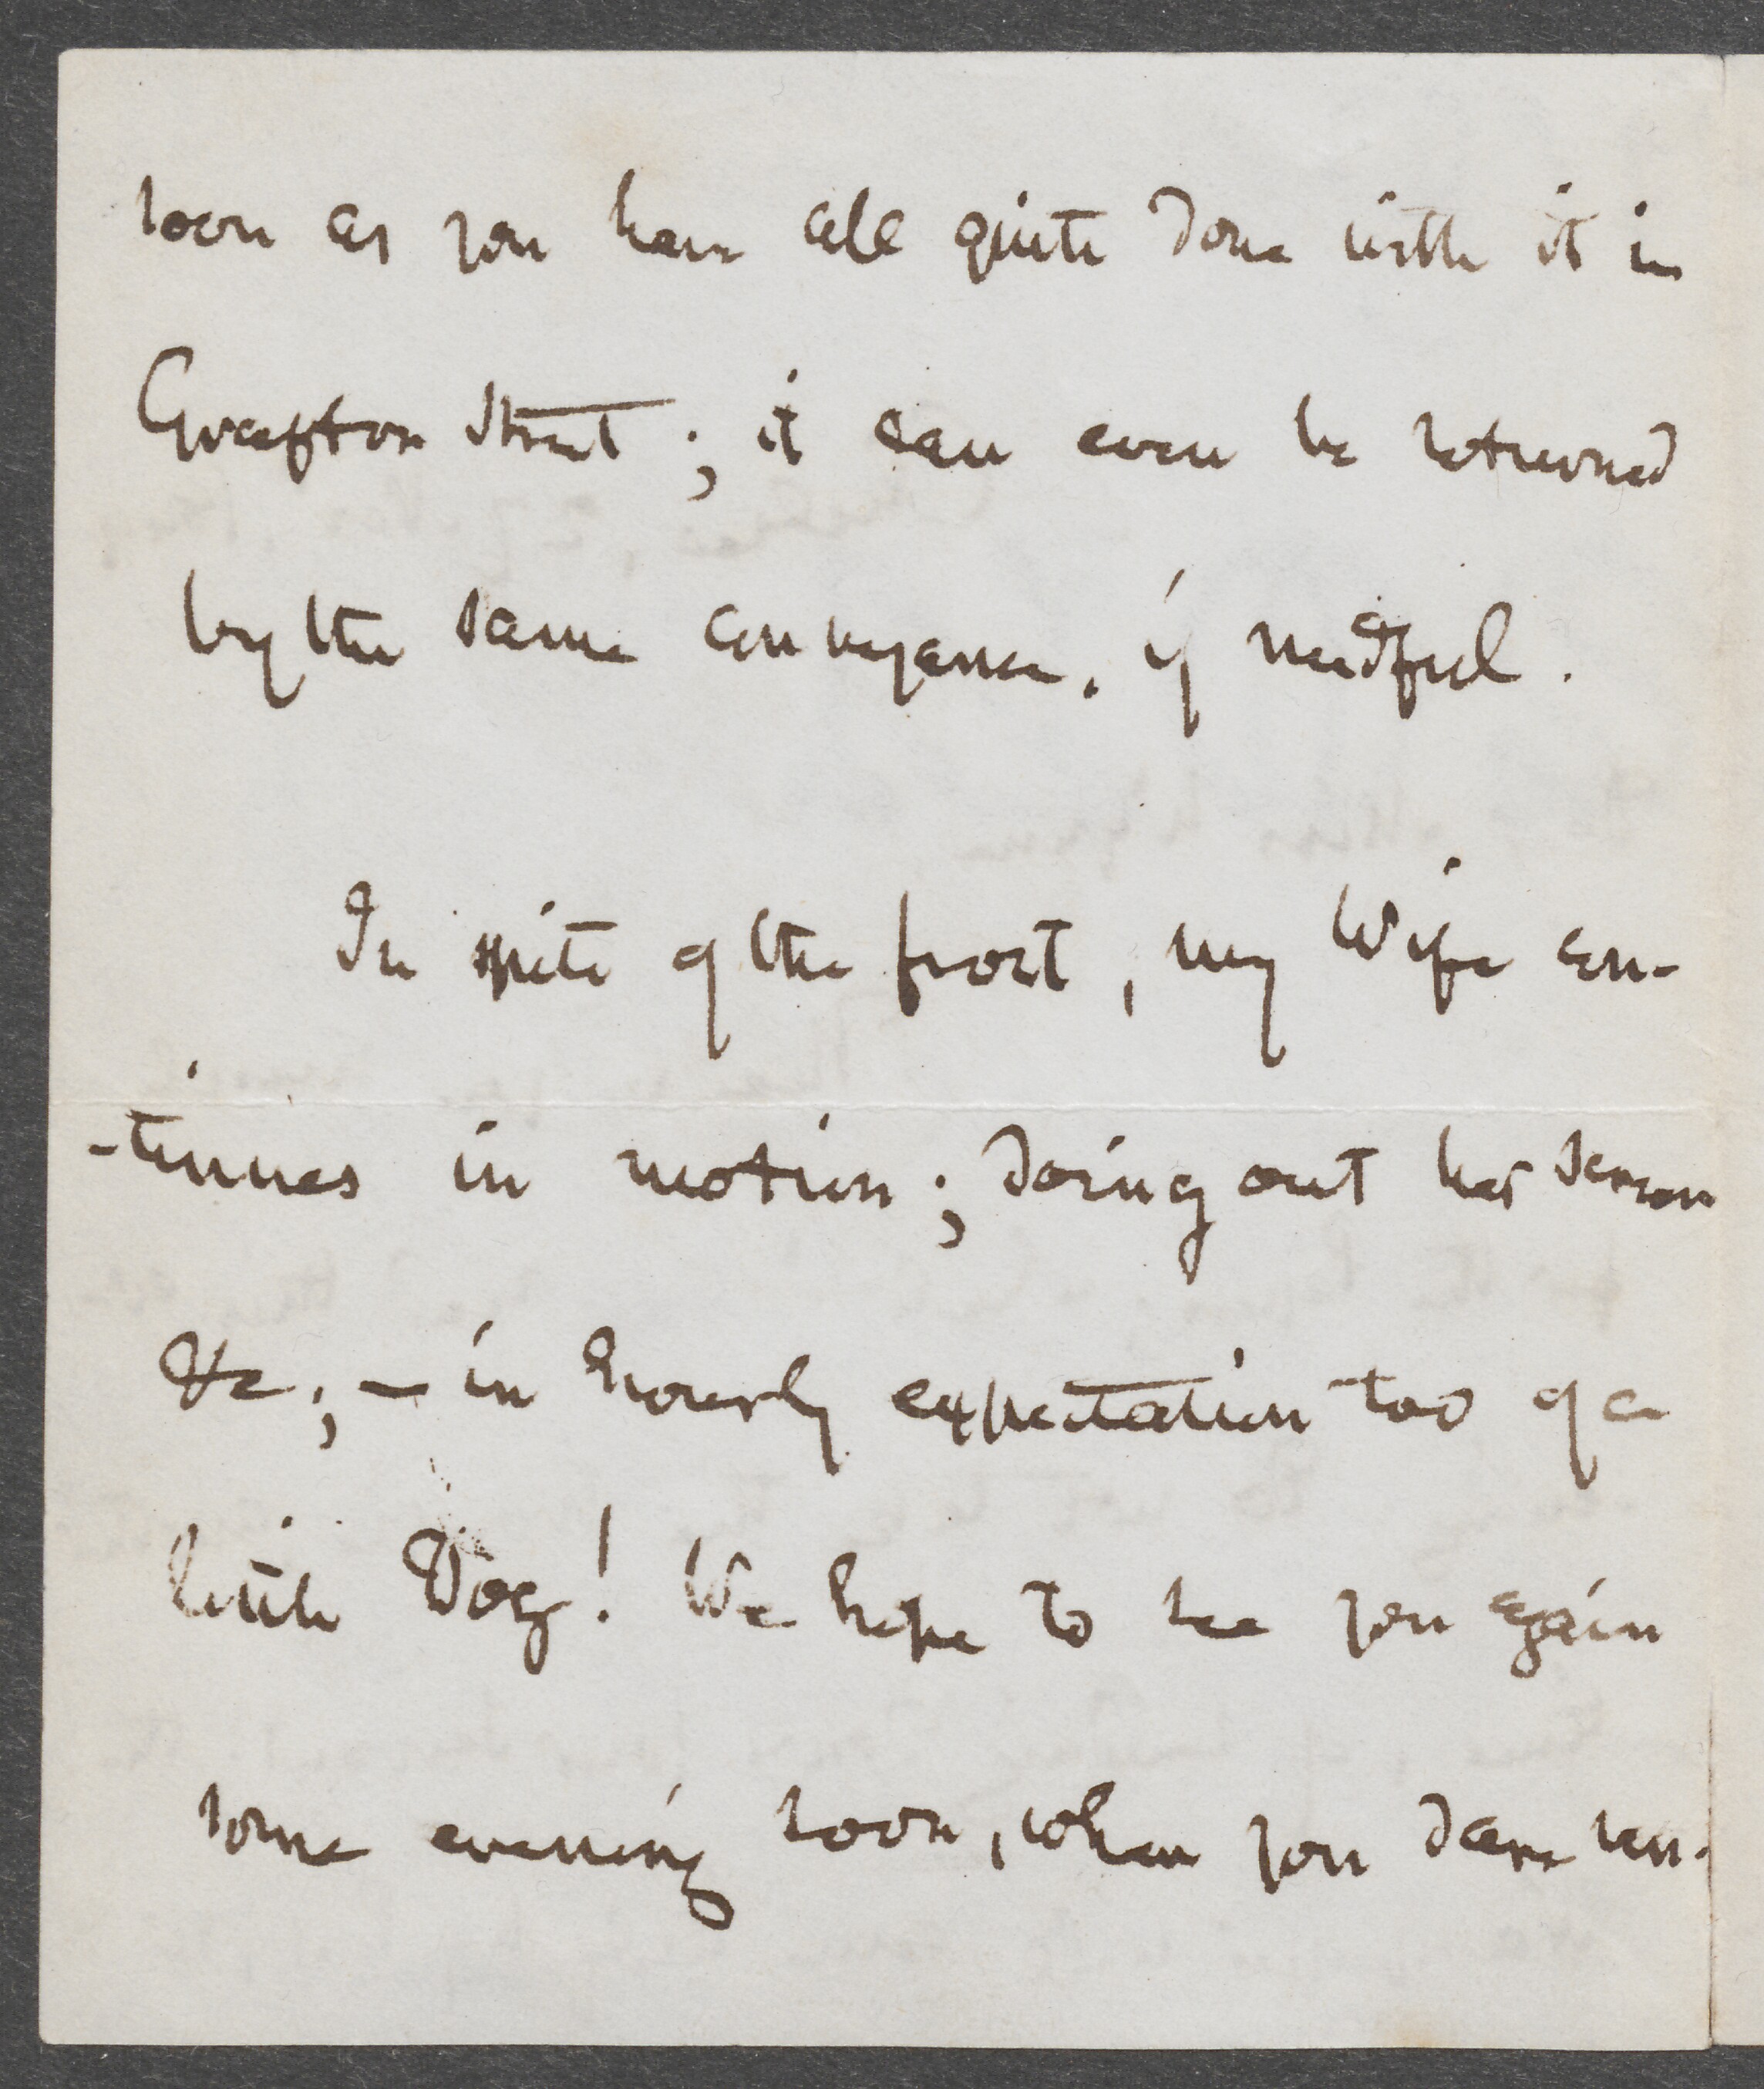 soon as you have all quite done with it in
Grafton Street; it can even be returned
by the same conveyance, if needful.
In spite of the frost, my Wife con-
-tinues in motion; doing out her
&c; — in hourly expectation too of a
little Dog! We hope to see you again
some evening soon, when you dare ven-